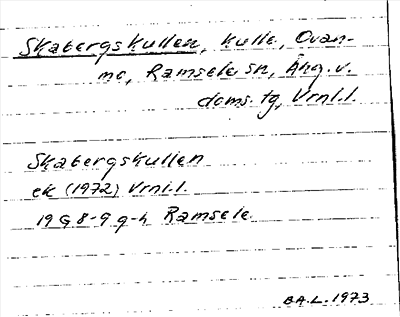 Skabergskullen, kulle, Ovan-
mo, Ramsele sn, Ång. v.
doms. tg, Vrnl.l.
Skabergskullen
ek (1972) Vrnl.l.
19 G 8-9 g-h Ramsele.
B.A.L. 1973